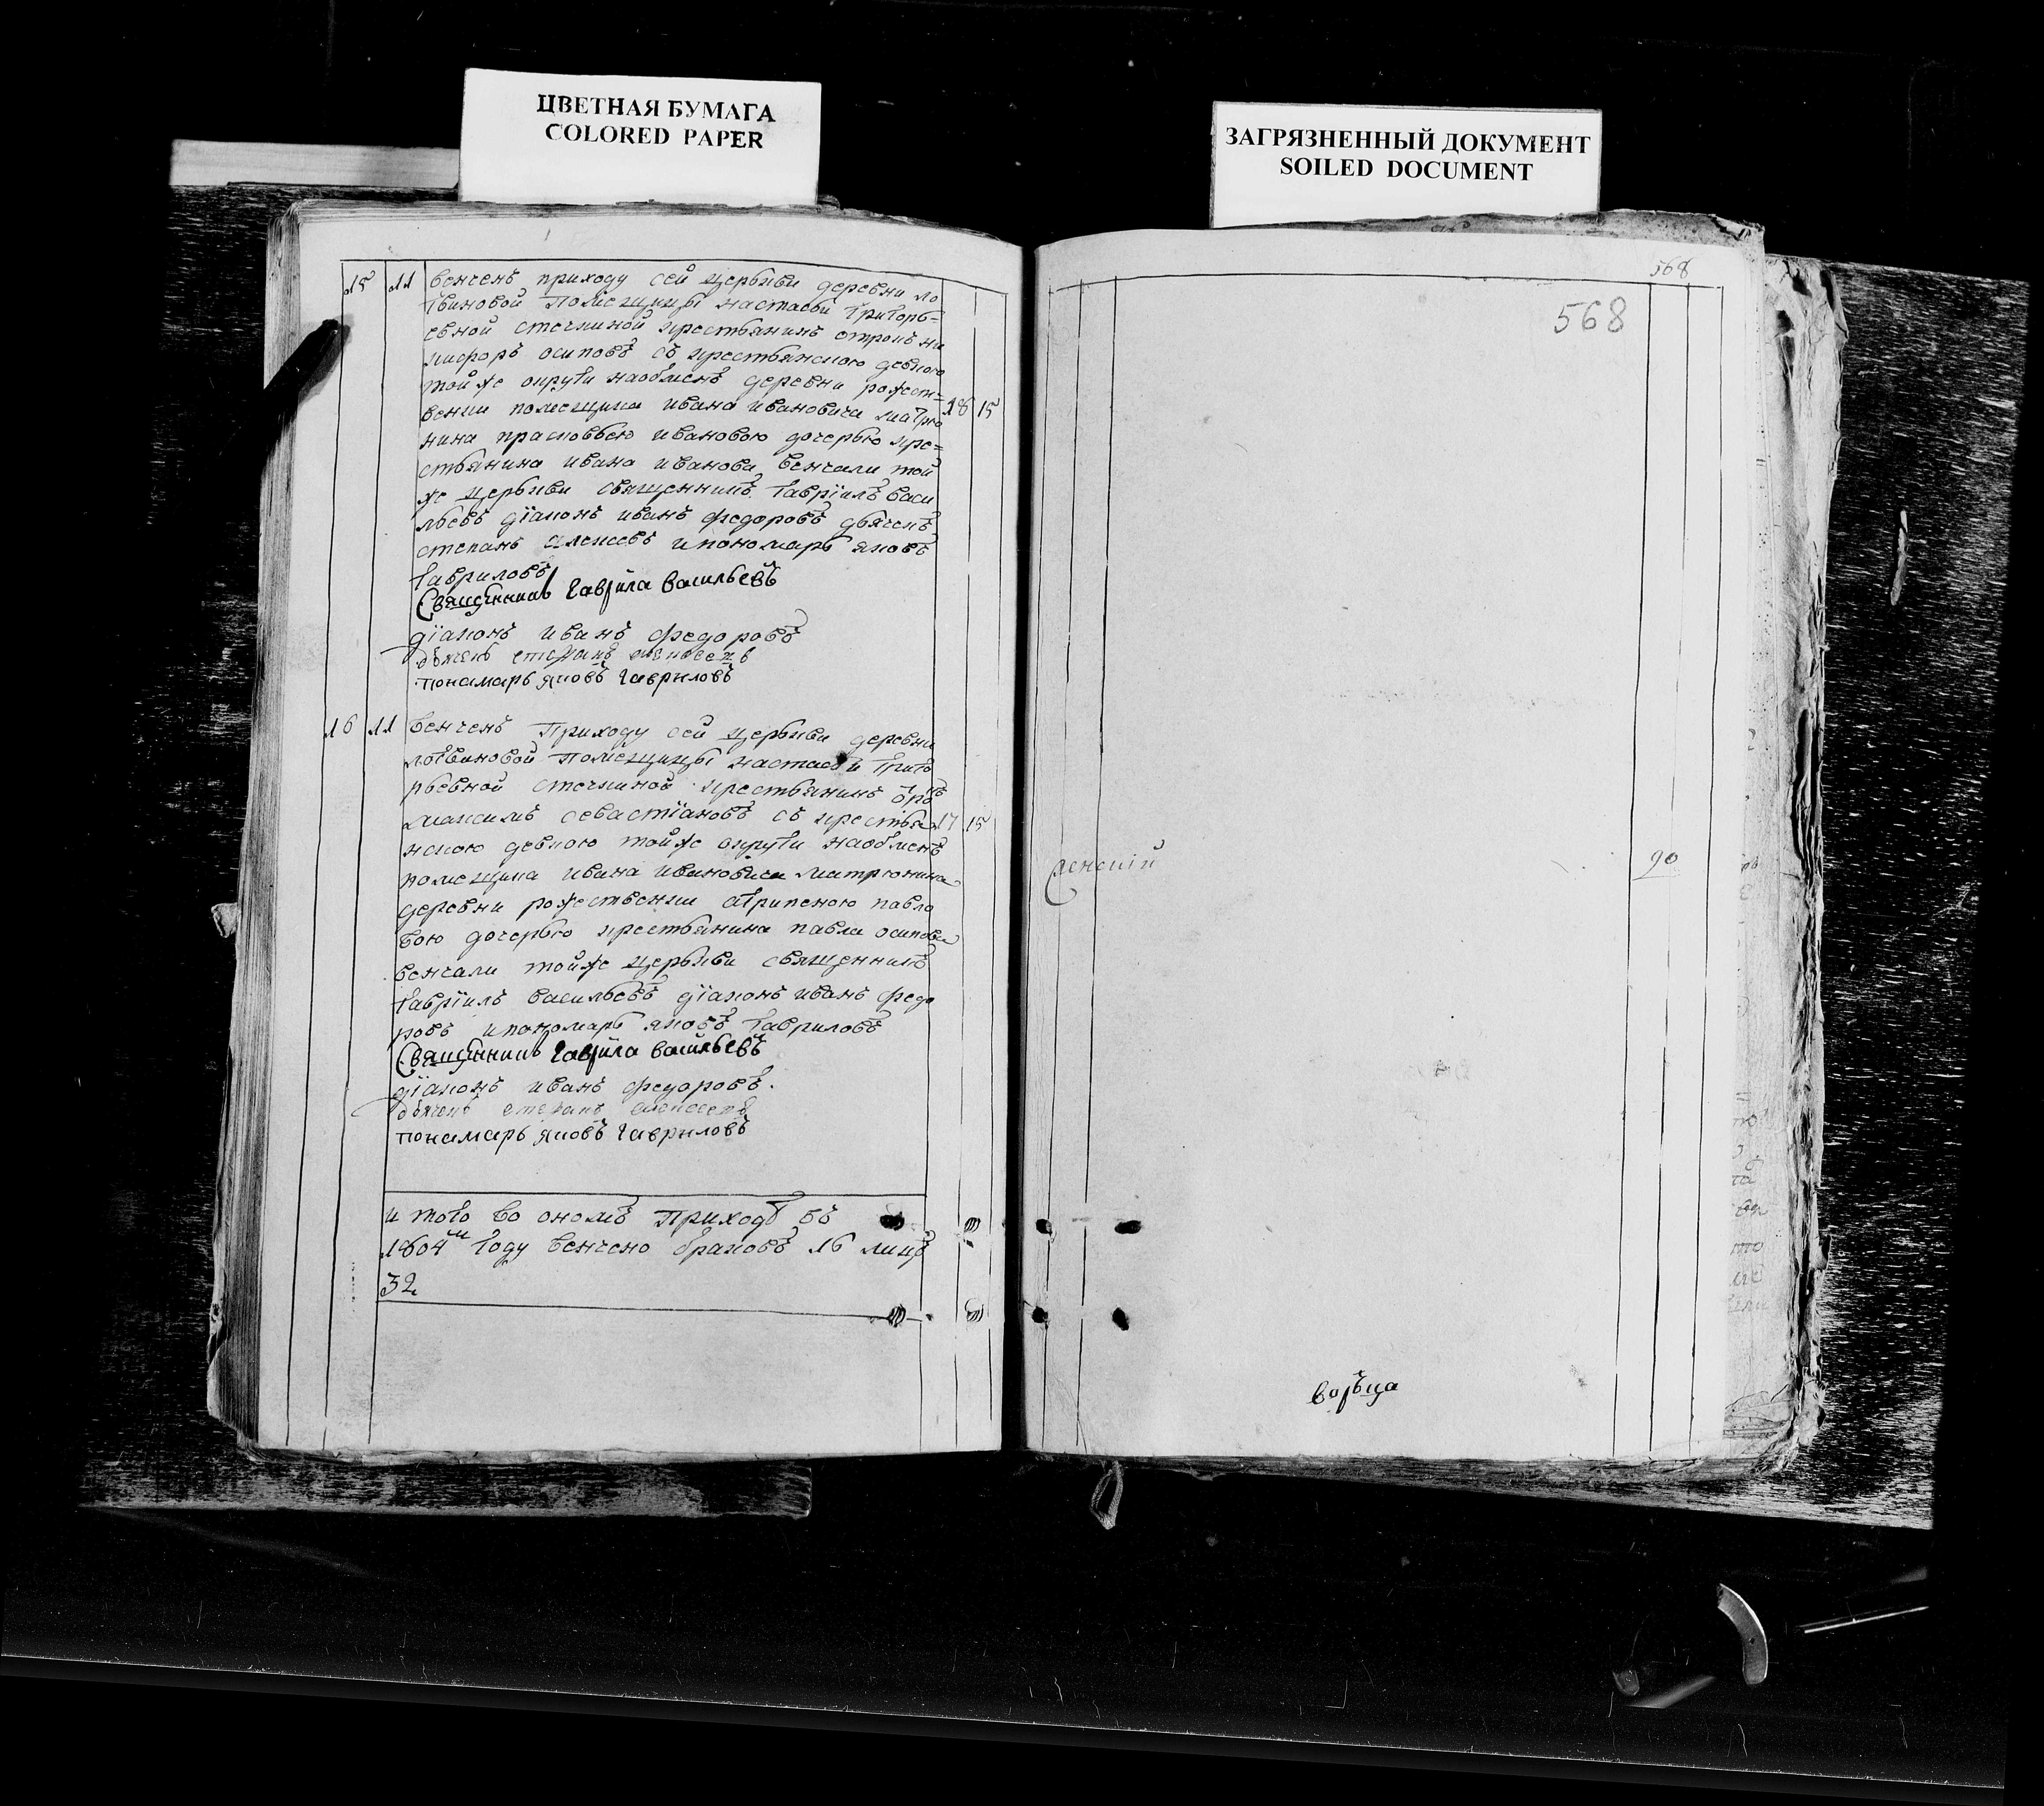 ЦВЕТНАЯ БУМАГА
COLORED PAPER
ЗАГРЯЗНЕННЫЙ ДОКУМЕНТ
SOILED DOCUMENT
15 11 венченъ приходу сей церькви деревни ло
гвиновой помещицы настасьи григорь=
евной стечкиной крестьянинъ отрокъ ни
кифоръ осиповъ съ крестьянскою девкою
той же округи наобменъ деревни рожест=
венки помещика ивана ивановича матрю 18 15
нина прасковьею ивановою дочерью кре=
стьянина ивана иванова венчали той
же церькви священникъ гавріилъ васи
льевъ діаконъ иванъ федоровъ дьячекъ
степанъ алексеевъ и пономарь яковъ
гавриловъ
Священникъ гаврила васильевъ
діаконъ иванъ федоровъ
дьячекъ степанъ алексеевъ
понамарь яковъ гавриловъ
16 11 венченъ приходу сей церькви деревни
логвиновой помещицы настасьи григо
рьевной стечкиной крестьянинъ
максимъ севастіановъ съ крестья 17 15
нскою девкою той же округи наобменъ
помещика ивана ивановича матрюнина
деревни рожественки агрипеною павло
вою дочерью крестьянина павла осипова
венчали той же церькви священникъ
гавріилъ васильевъ діаконъ иванъ федо
ровъ и пономарь яковъ гавриловъ
Священникъ гаврила васильевъ
діаконъ иванъ федоровъ.
дьячекъ степанъ алексеевъ
понамарь яковъ гавриловъ
и того во ономъ приходѣ въ
1804м году венчено браковъ 16 лицъ
32
568
568
90